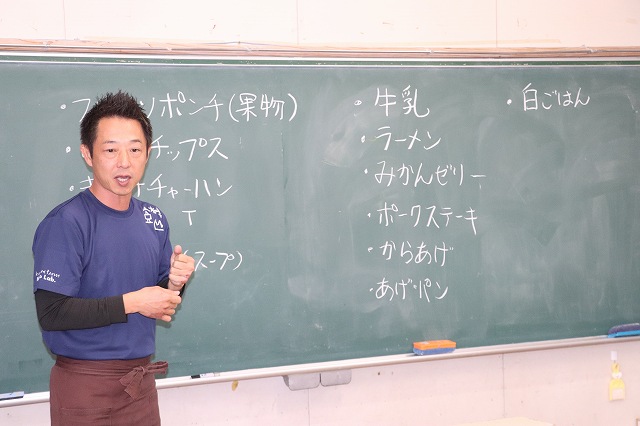 ・フ ツポンチ(果物)
・ チップス
チャーハン
T
(スープ)
・牛乳
・ラーメン
・みかんゼリー
・ポークステーキ
・からあげ
・あげパン
・白ごはん
Lab.